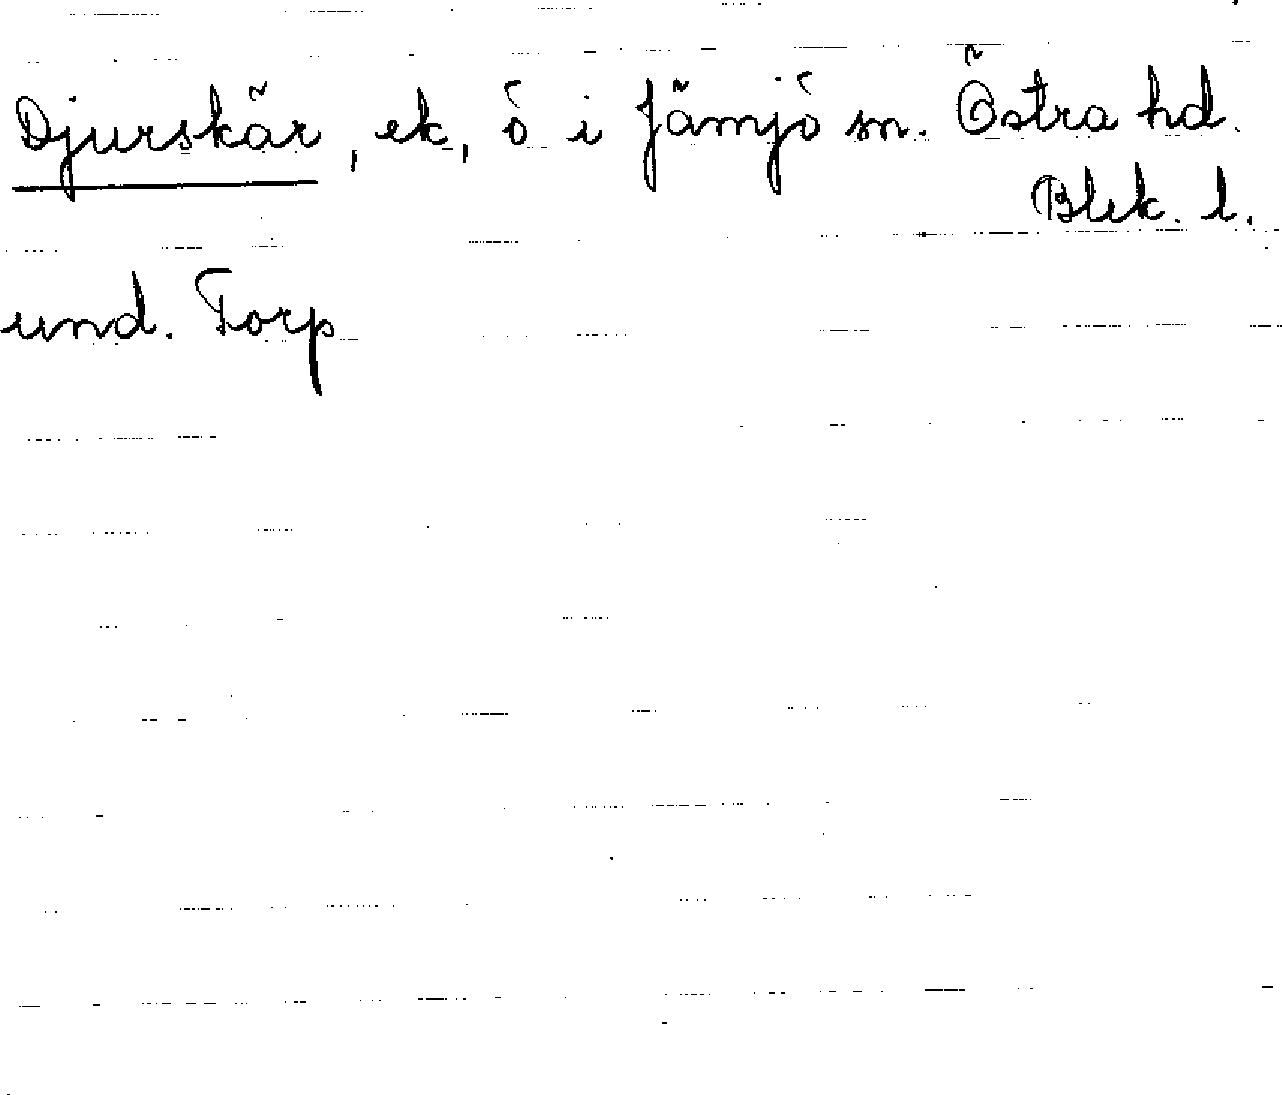 Djurskär, ek, ö i Jämjö sn. Östra hd.
Blek. l.
und. Torp